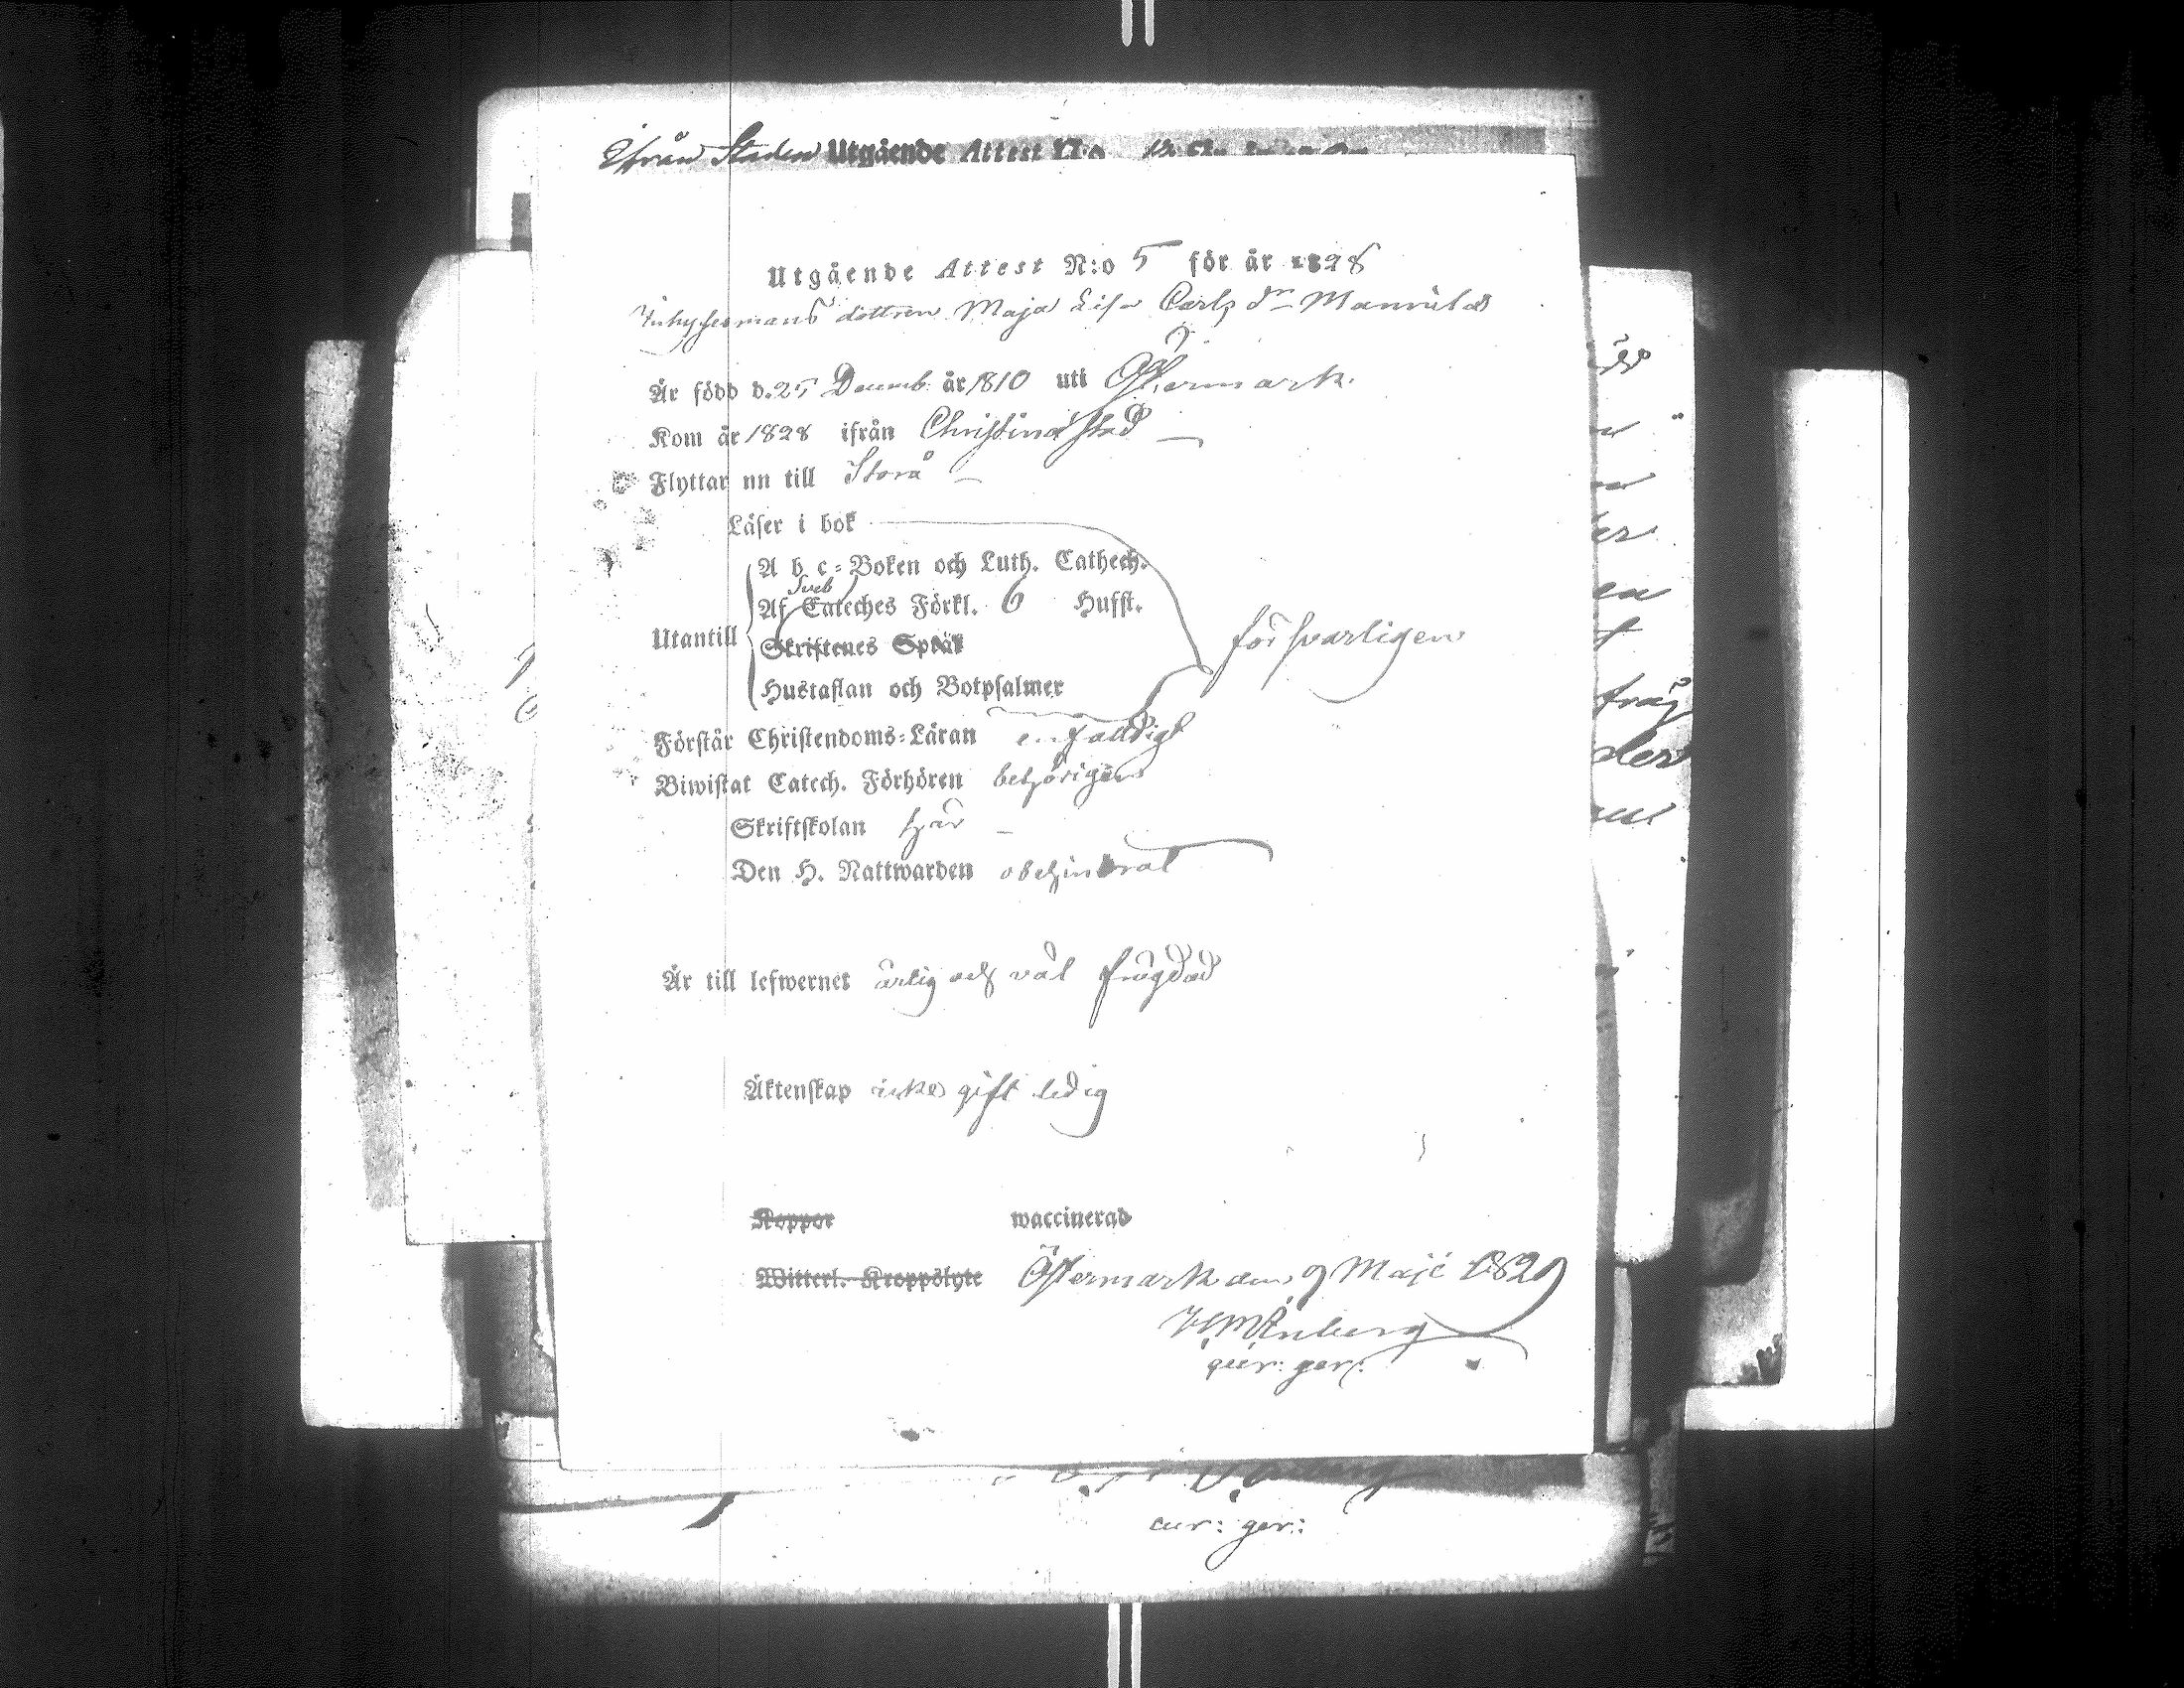 Ifrån Staden Utgående Attest N:o
Utgående Attest N:o 5 för år 1828
Inhysesmans dottren Maja Lisa Carls dr Mannila
Är född d. 25 Decemb. år 1810 uti Östermark.
Kom år 1828 ifrån Christinæstad
Flyttar nu till Storå
Läser i bok
A b c-Boken och Luth. Cathech.
Sveb
Af Cateches Förkl. 6 Hufst.
Utantill
Skriftenes Språk
försvarligen
Hustaflan och Botpsalmer
Förstår Christendoms-Läran enfaldigt
Biwistat Catech. Förhören behörigen
Skriftskolan här
Den H. Nattwarden obehindrat
Är till lefwernet ärlig och väl frägdad
Äktenskap icke gift ledig
Koppor waccinerad
Witterl. Kroppslyte Östermark den 9 Maji 1829
cur: ger:
cur: ger: